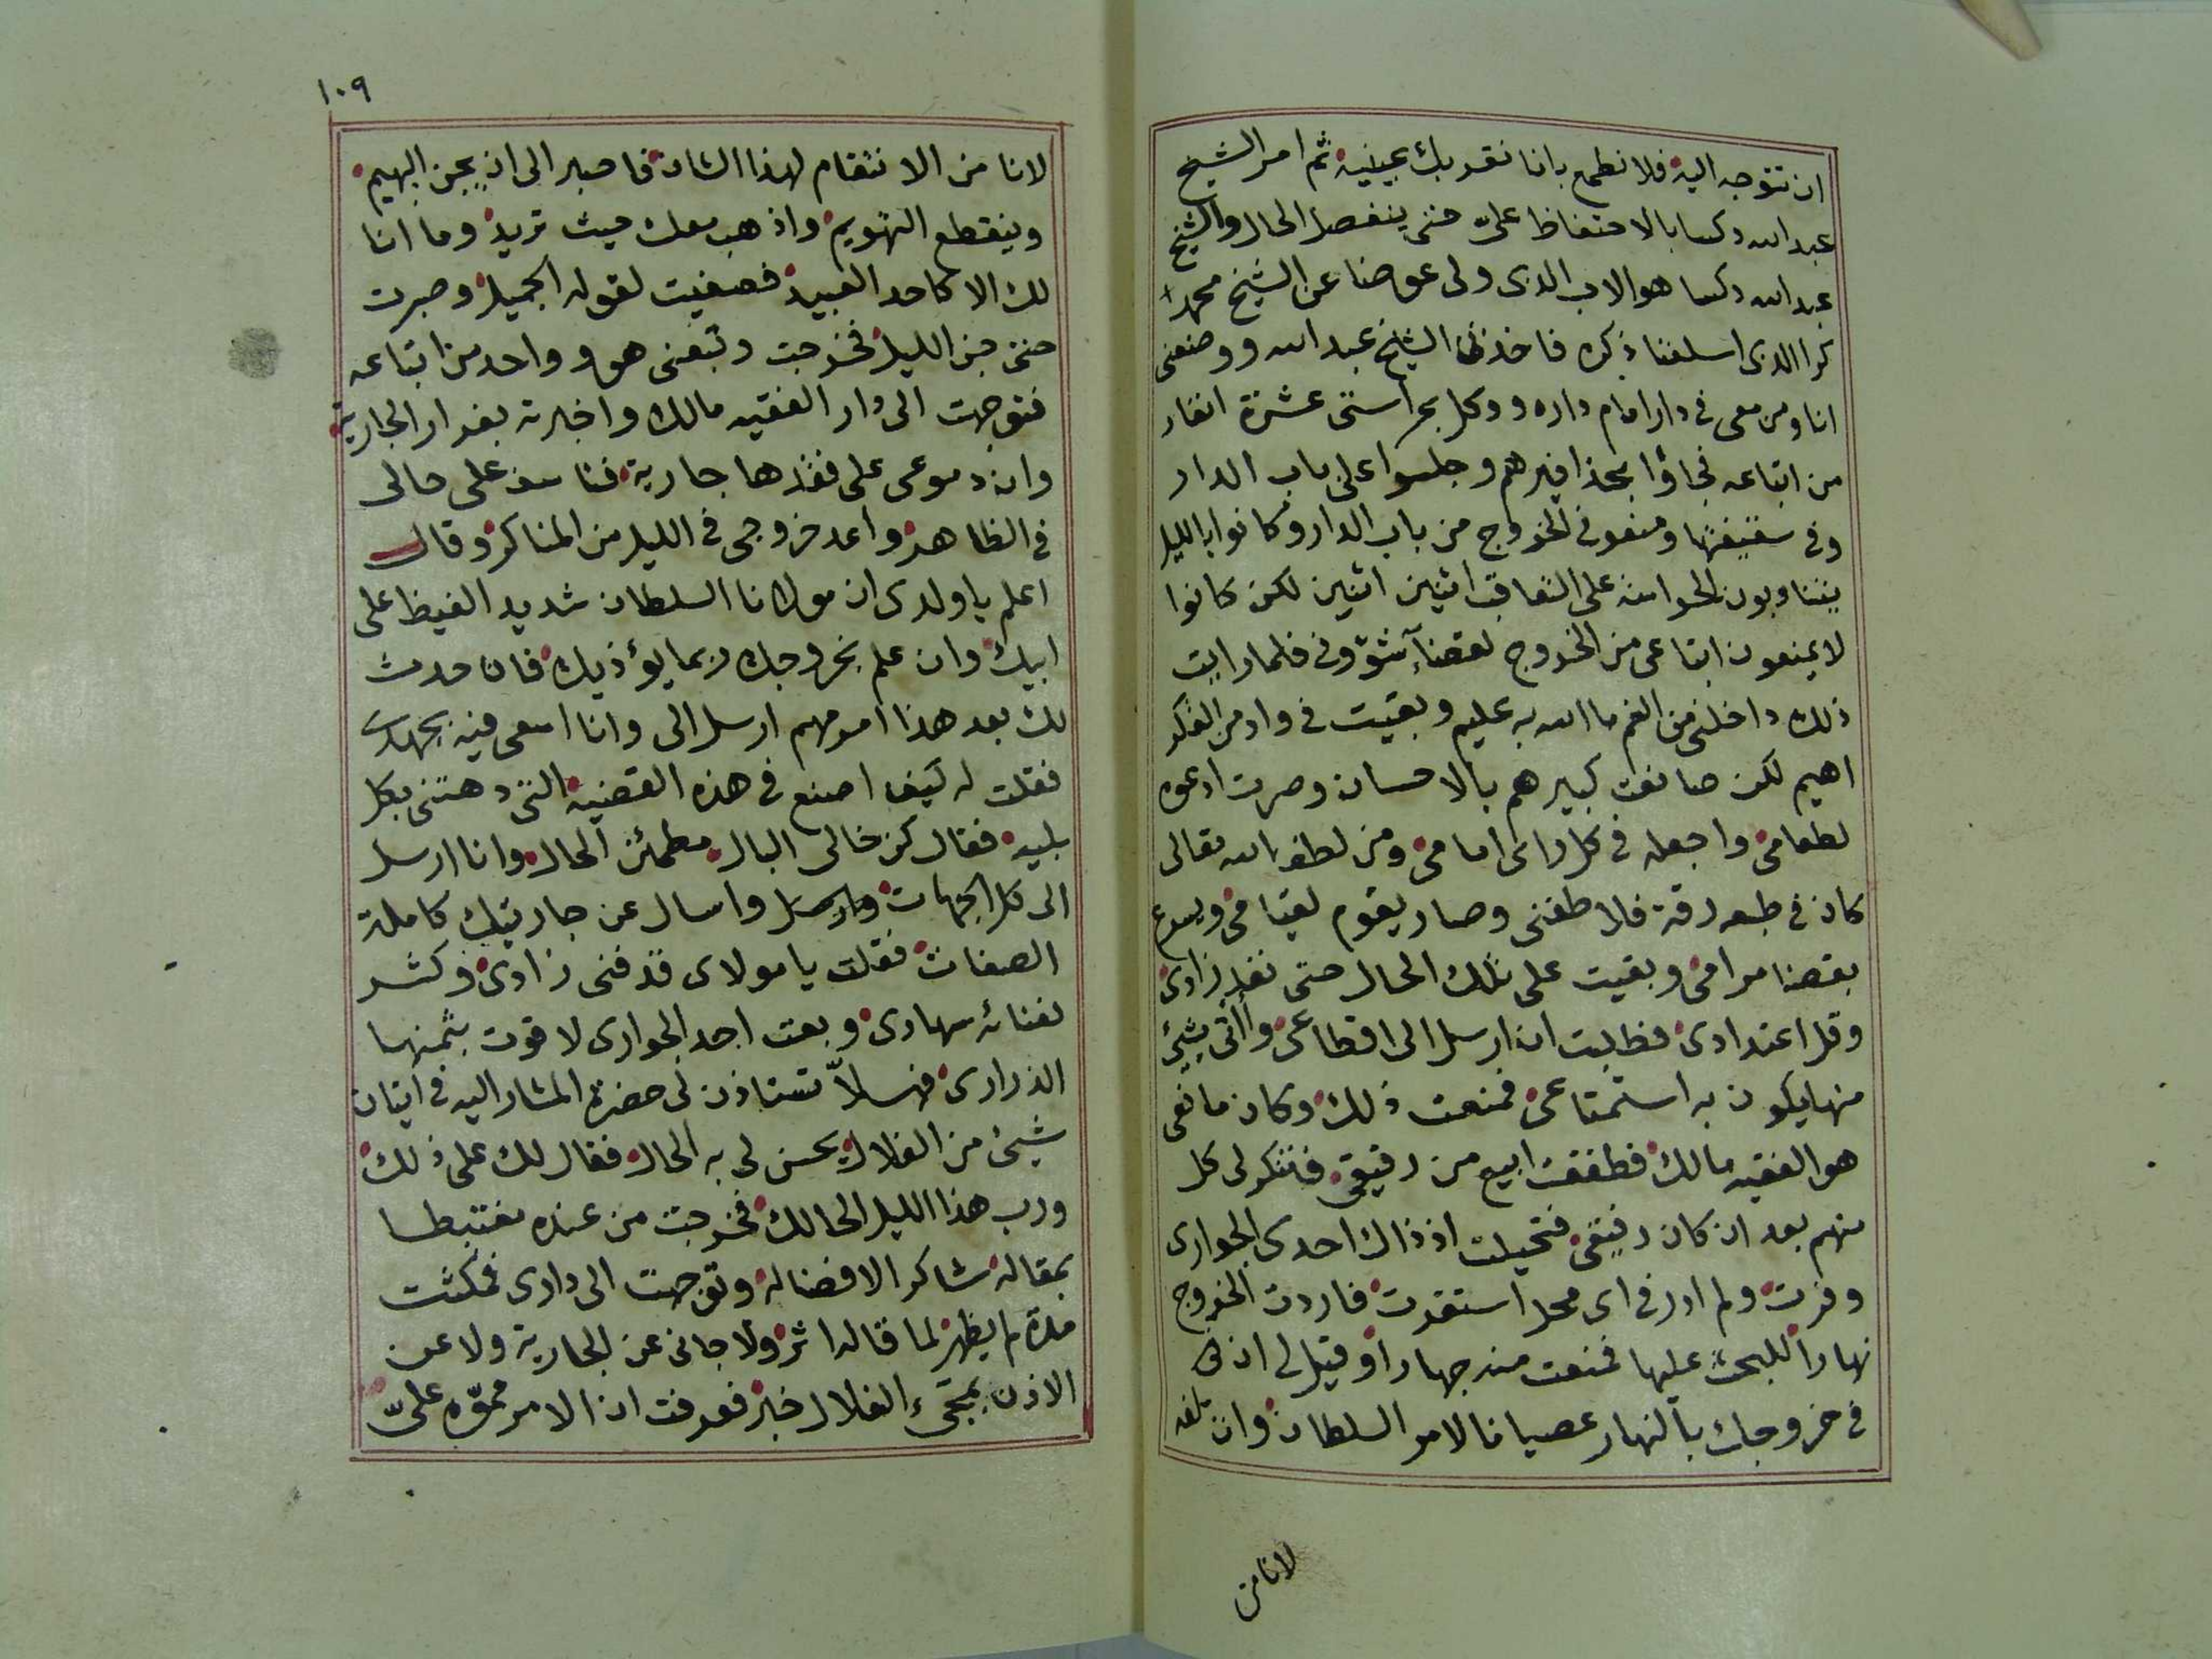 ان تتوجه اليه فلا نطمع بانا نقر بك بعينيه ثم امر الشيخ
عبد الله دكسا بالاحتفاظ علىّ حتى ينفصل الحال والشيخ
عبد الله دكسا هو الاب الذى ولى عوضا عن الشيخ محمد
كرا الذى اسلفنا ذكره فاخذنى الشيخ عبد الله ووضعنى
انا ومن معى فى دار امام داره ووكل بحراستى عشرة انفار
من اتباعه فجاؤا بحذافيرهم وجلسوا على باب الدار
وفى سقيفتها ومنعونى الخروج من باب الدار وكانوا بالليل
يتناوبون الحراسة على التعاقب اثنين اثنين لكن كانوا
لا يمنعون اتباعى من الخروج لقضآء شؤونى فلما رايت
ذلك داخلنى من الغم ما الله به عليم وبقيت فى واد من الفكر
اهيم لكن صانعت كبيرهم بالاحسان وصرت ادعوه
لطعامى واجعله فى كل راى امامى ومن لطف الله تعالى
كان فى طبعه رقة فلاطفنى وصار يقوم لقيامى ويسرع
بقضا مرامى وبقيت على تلك الحال حتى نفد زادى
وقل اعتدادى فطلبت ان ارسل الى اقطاعى وأاتى بشيئ
منها يكون به استمتاعى فمنعت ذلك وكان مانعى
هو الفقيه مالك فطفقت ابيع من رقيقى فتنكر لى كل
منهم بعد ان كان رفيقى فتحيلت اذ ذاك احدى الجوارى
وفرت ولم ادر فى اى محل استقرت فاردت الخروج
نهارا للبحث عليها فمنعت منه جهارا وقيل لى ان
فى خروجك بالنهار عصيانا لامر السلطان وان بلغه
لانا من
١٠٩
لانا من الانتقام لهذا الشان فاصبر الى ان يجن البهيم
وينقطع التهويم واذهب معك حيث تريد وما انا
لك الا كاحد العبيد فصغيت لقوله الجميل وصبرت
حتى جن الليل فخرجت وتبعنى هو وواحد من اتباعه
فتوجهت الى دار الفقيه مالك واخبرته بفرار الجارية
وان دموعى على فقدها جارية فتاسف على حالى
فى الظاهر واعد خروجى فى الليل من المناكر وقال
اعلم يا ولدى ان مولانا السلطان شديد الغيظ على
ابيك وان علم بخروجك ربما يؤذيك فان حدث
لك بعد هذا امر مهم ارسل الى وانا اسعى فيه بجهدى
فقلت له كيف اصنع فى هذه القضية التى دهتنى بكل
بلية فقال كن خالى البال مطمئن الحال وانا ارسل
الى كل الجهات واسال عن جاريتك كاملة
الصفات فقلت يا مولاى قد فنى زادى وكثر
لفنائه سهادى وبعت احد الجوارى لاقوت بثمنها
الذرارى فهلاّ تستاذن لى حضرة المشار اليه فى اتيان
شيئ من الغلال يحسن لى به الحال فقال لك على ذلك
ورب هذا الليل الحالك فخرجت من عنده مغتبطا
بمقاله شاكرا لافضاله وتوجهت الى دارى فمكثت
مدة لم يظهر لما قاله اثر ولا جانى عن الجارية ولا عن
الاذن بمجىء الغلال خبر فعرفت ان الامر مموّه علىّ